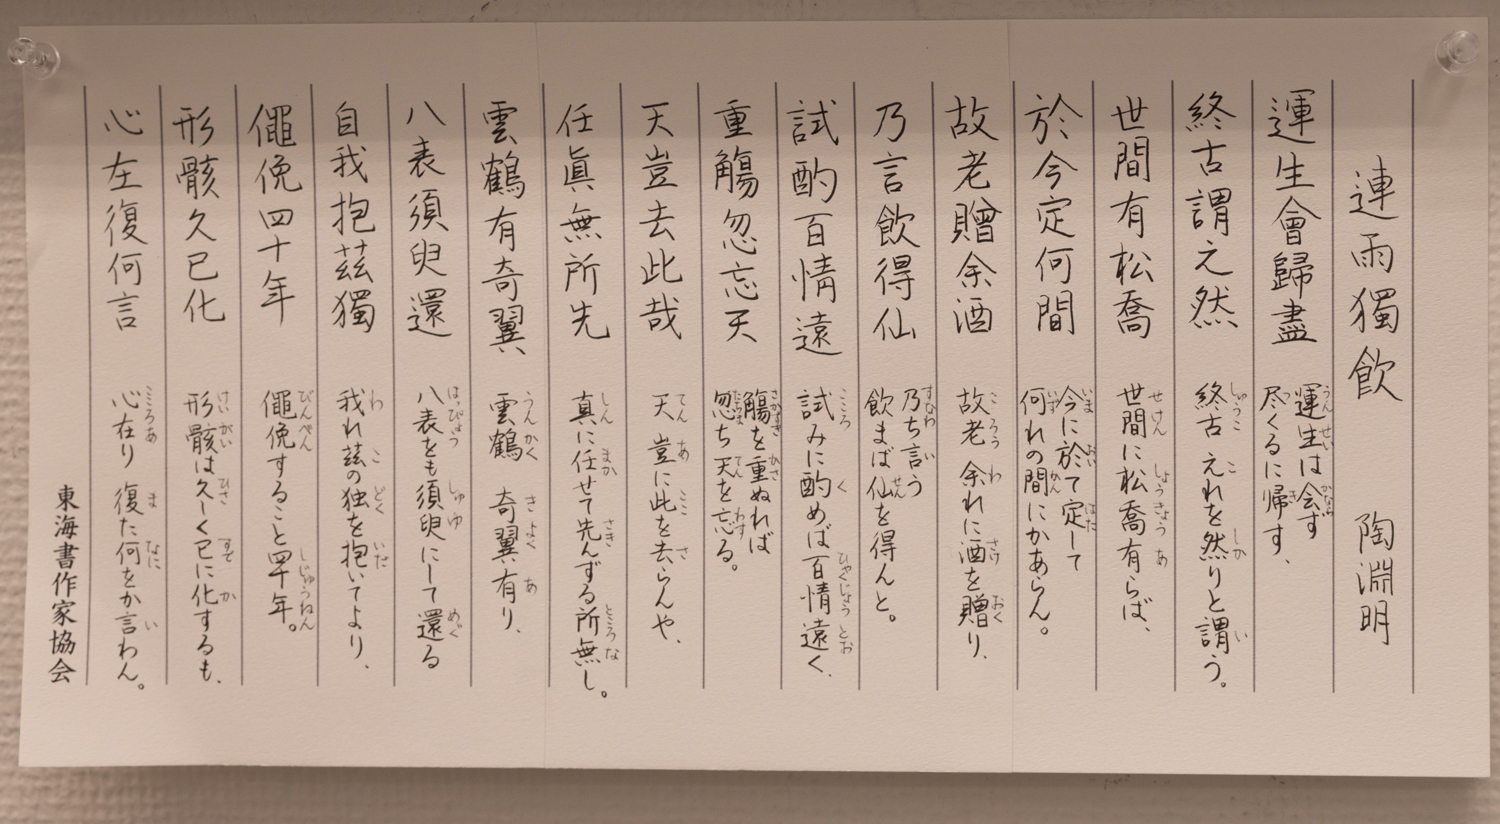 連雨獨飲　陶淵明
運生會歸盡　運生は会ず尽くるに帰す、
終古謂之然　終古 之れを然りと謂う。
世間有松喬　世間に松喬有らば、
於今定何間　今に於て定して何れの間にかあらん。
故老贈余酒　故老 余れに酒を贈り、
乃言飲得仙　乃ち言う飲まば仙を得んと。
試酌百情遠　試みに酌めば百情遠く、
重觴忽忘天　觴を重ぬれば忽ち天を忘る。
天豈去此哉　天 豈に此を去らんや、
任眞無所先　真に任せて先んずる所無し。
雲鶴有奇翼　雲鶴 奇翼有り、
八表須臾還　八表をも須臾にして還る
自我抱茲獨　我れ茲の独を抱いてより、
僶俛四十年　僶俛すること四十年。
形骸久已化　形骸は久しく已に化するも、
心在復何言　心在り 復た何をか言わん。
東海書作家協会